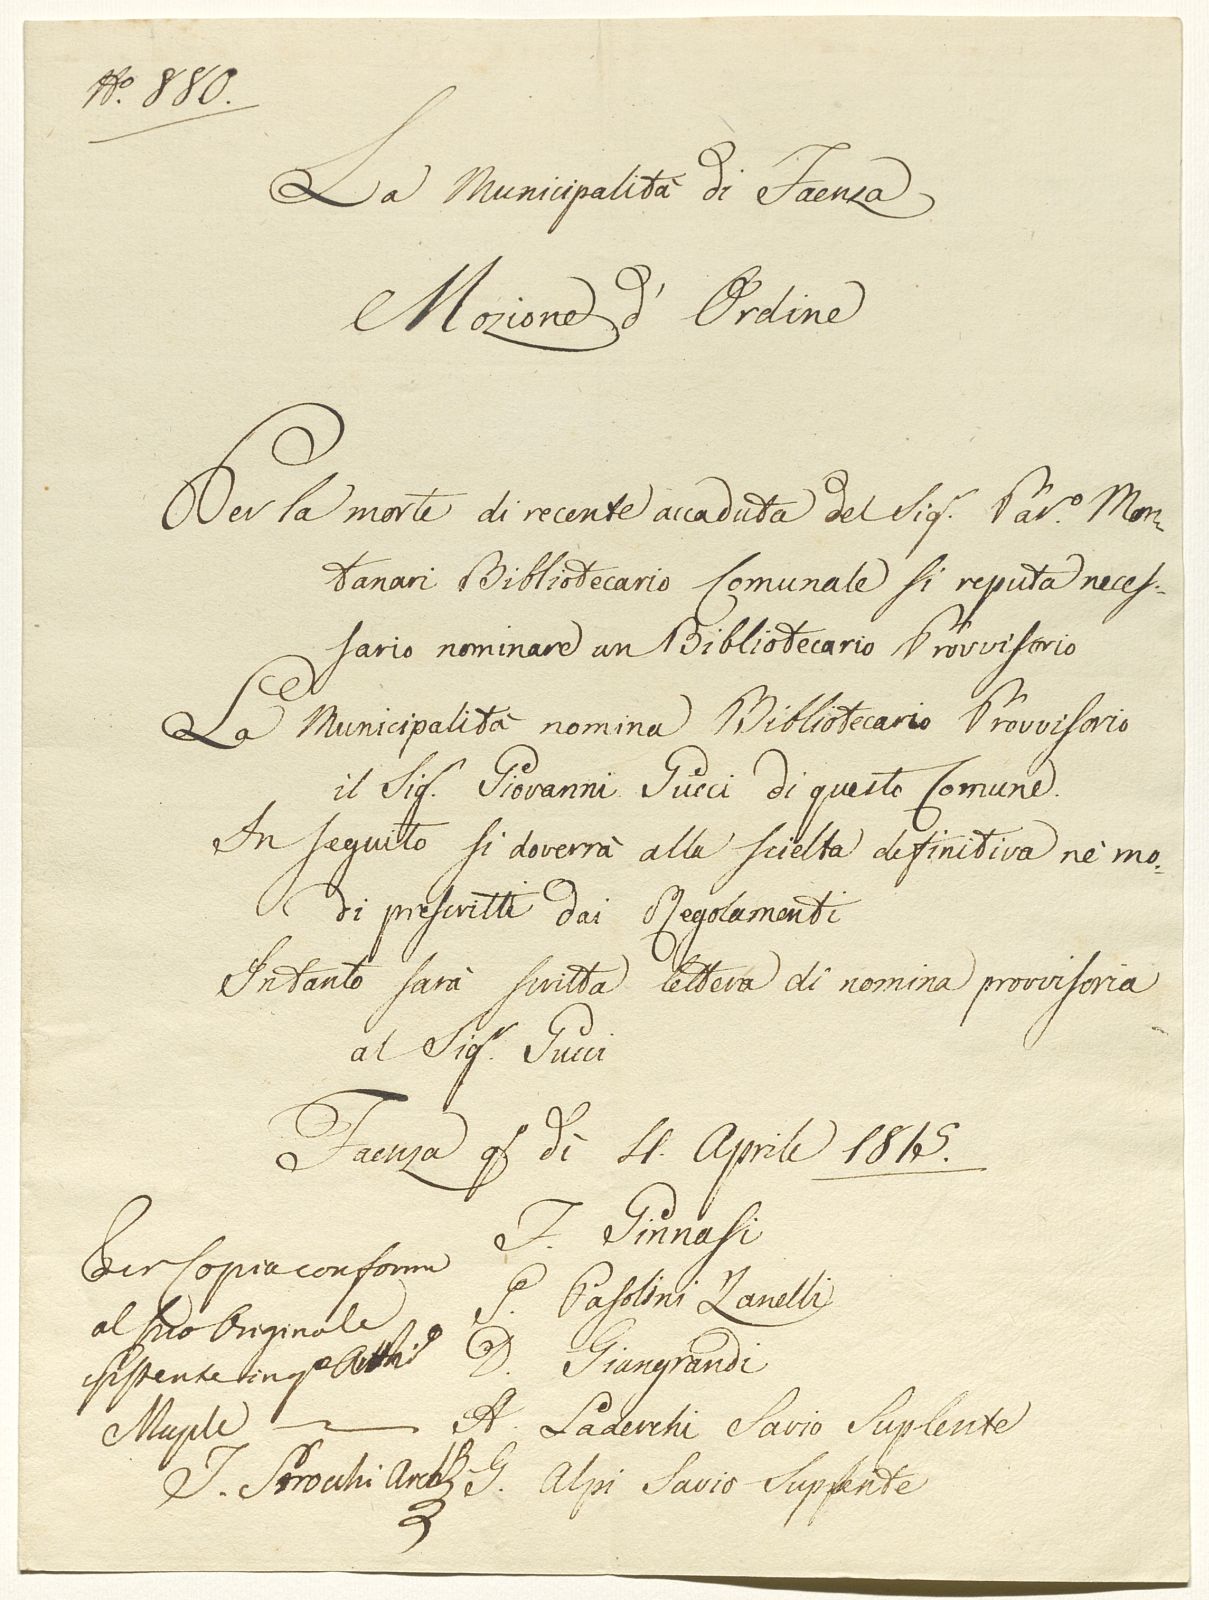 No. 880.
La Municipalità di Faenza
Mozione d' Ordine
Per la morte di recente accaduta del Sigr. Par.o Mon-
tanari Bibliotecario Comunale si reputa neces-
sario nominare un Bibliotecario Provvisorio
La Municipalità nomina Bibliotecario Provvisorio
il Sigr. Giovanni Gucci di questo Comune.
In seguito si doverrà alla scielta definitiva ne' mo-
di prescritti dai Regolamenti
Intanto sarà scritta lettera di nomina provvisoria
al Sigr. Gucci
Faenza di 4. Aprile 1815.
F. Ginnasi
P. Pasolini Zanelli
D. Giangrandi
A. Laderchi Savio Suplente
G. Alpi Savio Supplente
Per Copia conforme
al suo Originale
esistente in
Muple
Strocchi Arch